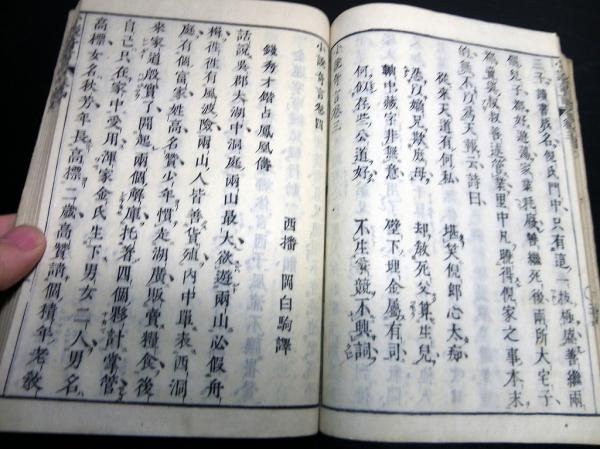 三子、讀書成名、倪氏門中、只有這一枝極盛、善繼兩
個兒子、都好遊蕩、家業耗廢、善繼死後、兩所大宅子、
都賣與叔叔善述管業、里中凡曉得倪家之事本末
的、無不以爲天報云、詩曰、
從來天道有何私 堪笑倪郎心太痴
忍以嫡兄欺庶母 却敎死父算生兒
軸中藏字非無意 壁下埋金屬有司
何似存些公道好 不生爭競不興詞
小說奇言卷三
小說奇言卷四
錢秀才錯占鳳凰儔
西播 岡白駒譯
話說吳郡大湖中、洞庭兩山最大、欲遊兩山、必假舟
楫、往往有風波險、兩山人皆善貨殖、內中單表西洞
庭有個富家、姓高名贊、少年慣走湖廣、販賣糧食、後
來家道殷實了、開起兩個解庫、托著四個夥計掌管、
自己只在家中受用、渾家金氏、生下男女二人、男名
高標、女名秋芳、年長高標二歲、高贊請個積年老敎